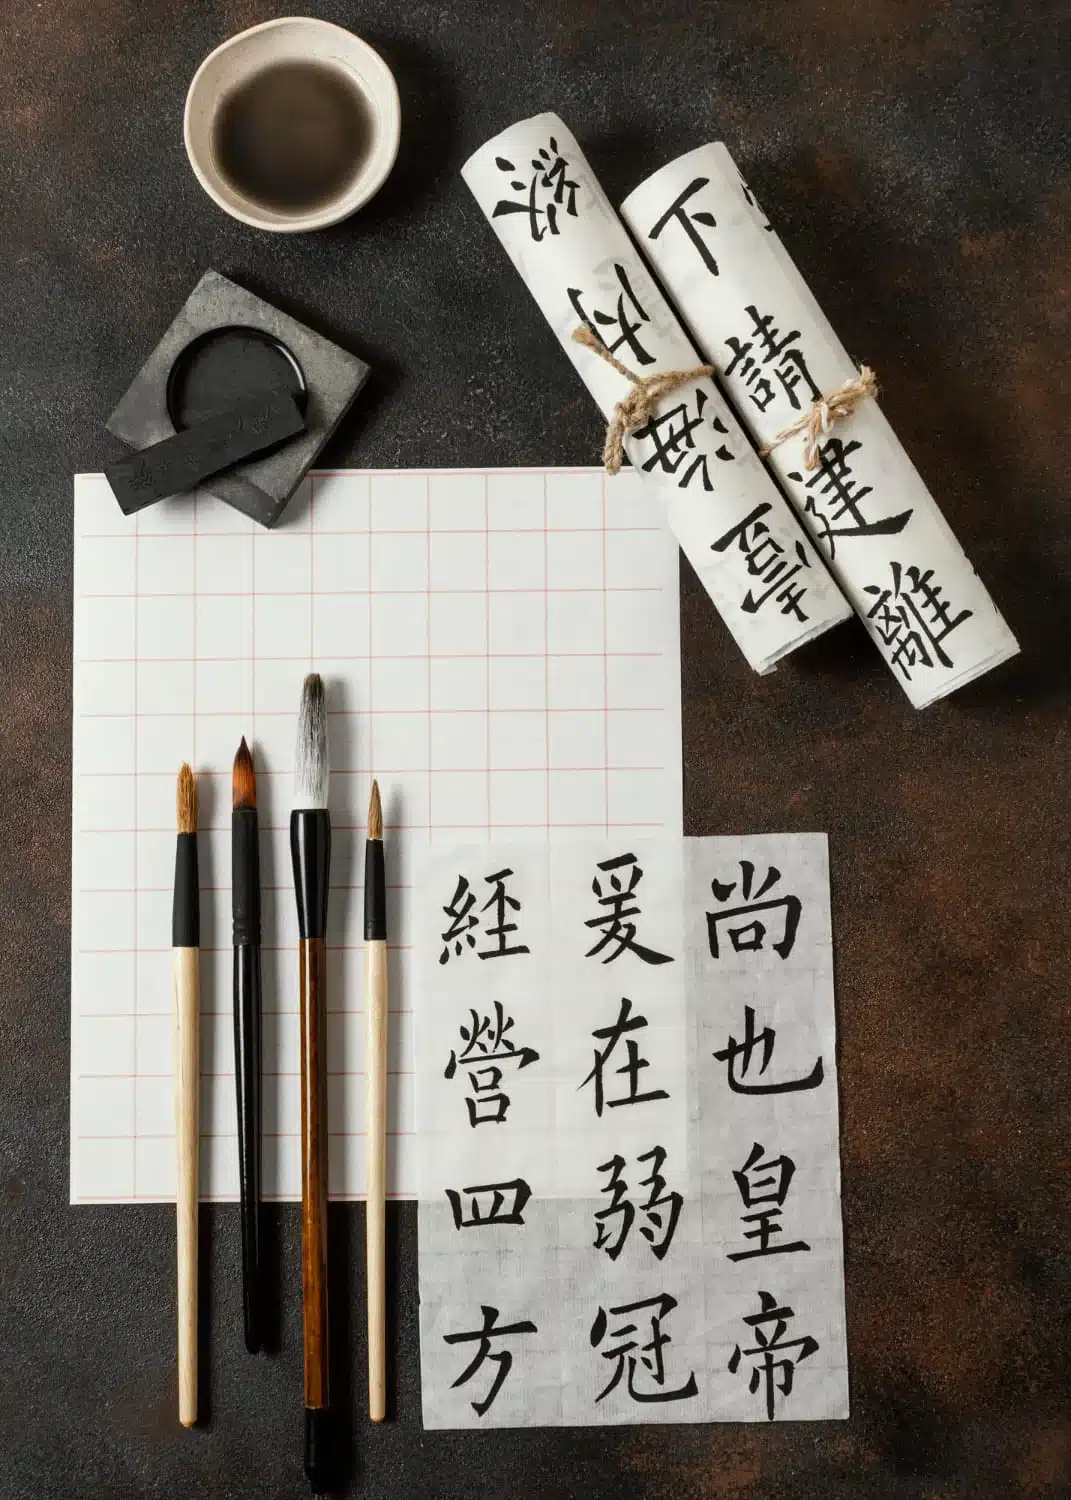 下請建離
尚也皇帝
爰在弱冠
經營四方